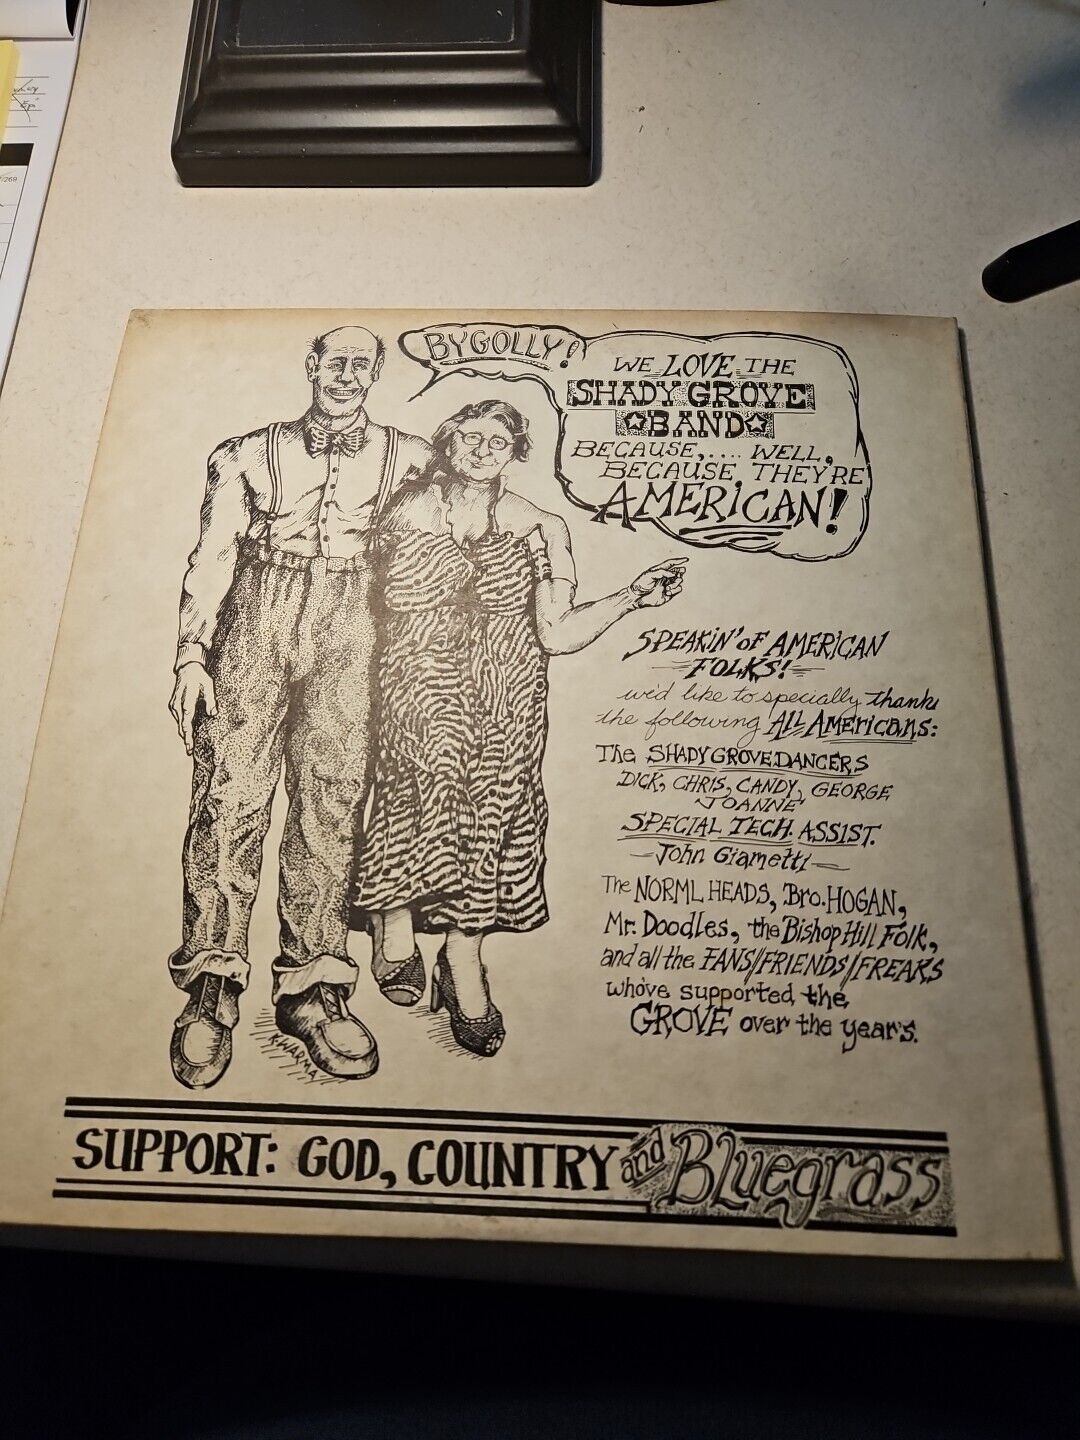 BY GOLLY!
WE LOVE THE
SHADY GROVE
BAND
BECAUSE,.... WELL,
BECAUSE, THEY'RE
AMERICAN!
SPEAKIN' OF AMERICAN
FOLKS!
we'd like to specially thank
the following ALL AMERICANS:
The SHADY GROVE DANCERS
DICK, CHRIS, CANDY, GEORGE
JOANNE
SPECIAL TECH. ASSIST.
— John Giametti —
The NORML HEADS, Bro. HOGAN,
Mr. Doodles, the Bishop Hill Folk,
and all the FANS/FRIENDS/FREAKS
who've supported the
GROVE over the years.
K. WARMA
SUPPORT: GOD, COUNTRY and Bluegrass